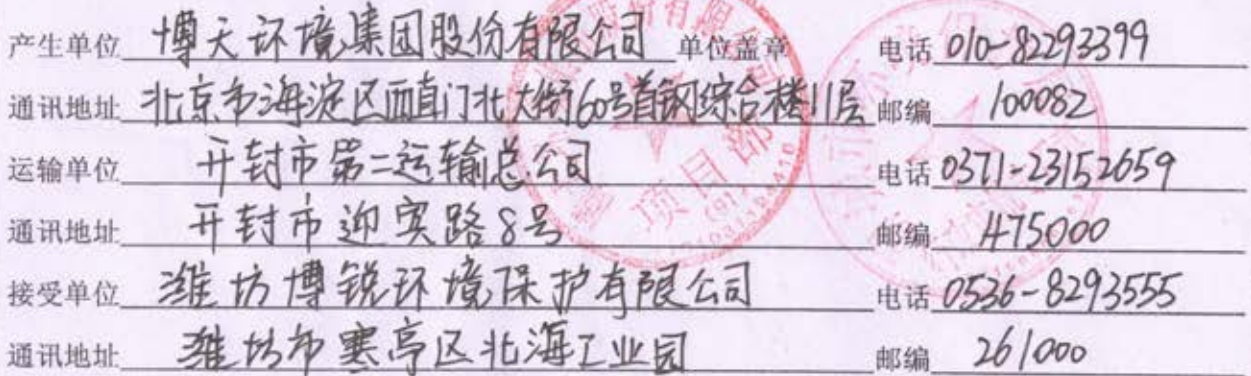 产生单位 博天环境集团股份有限公司 单位盖章 电话 010-82293399
通讯地址 北京市海淀区西直门北大街60号首钢综合楼11层 邮编 100082
运输单位 开封市第二运输总公司 电话 0371-23152659
通讯地址 开封市迎宾路8号 邮编 475000
接受单位 潍坊博锐环境保护有限公司 电话 0536-8293555
通讯地址 潍坊市寒亭区北海工业园 邮编 261000
股份有限公司
项目部